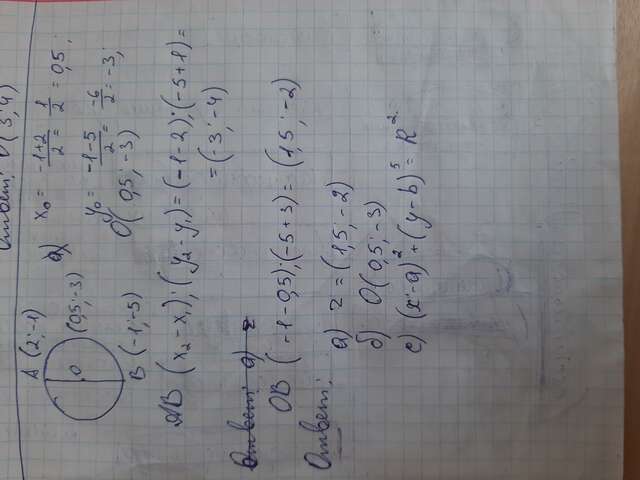 Ответ: D(3; 4)
A (2; -1)
(0,5; -3)
O
B (-1; -5)
а) x₀ = -1+2/2 = 1/2 = 0,5;
y₀ = -1-5/2 = -6/2 = -3;
O(0,5; -3)
AB (x₂-x₁); (y₂-y₁) = (-1-2); (-5+1) =
= (-3; -4)
Ответ: а) r
OB (-1-0,5); (-5+3) = (1,5; -2)
Ответ:
а) r = (1,5; -2)
б) O(0,5; -3)
с) (x-a)² + (y-b)⁵ = R²